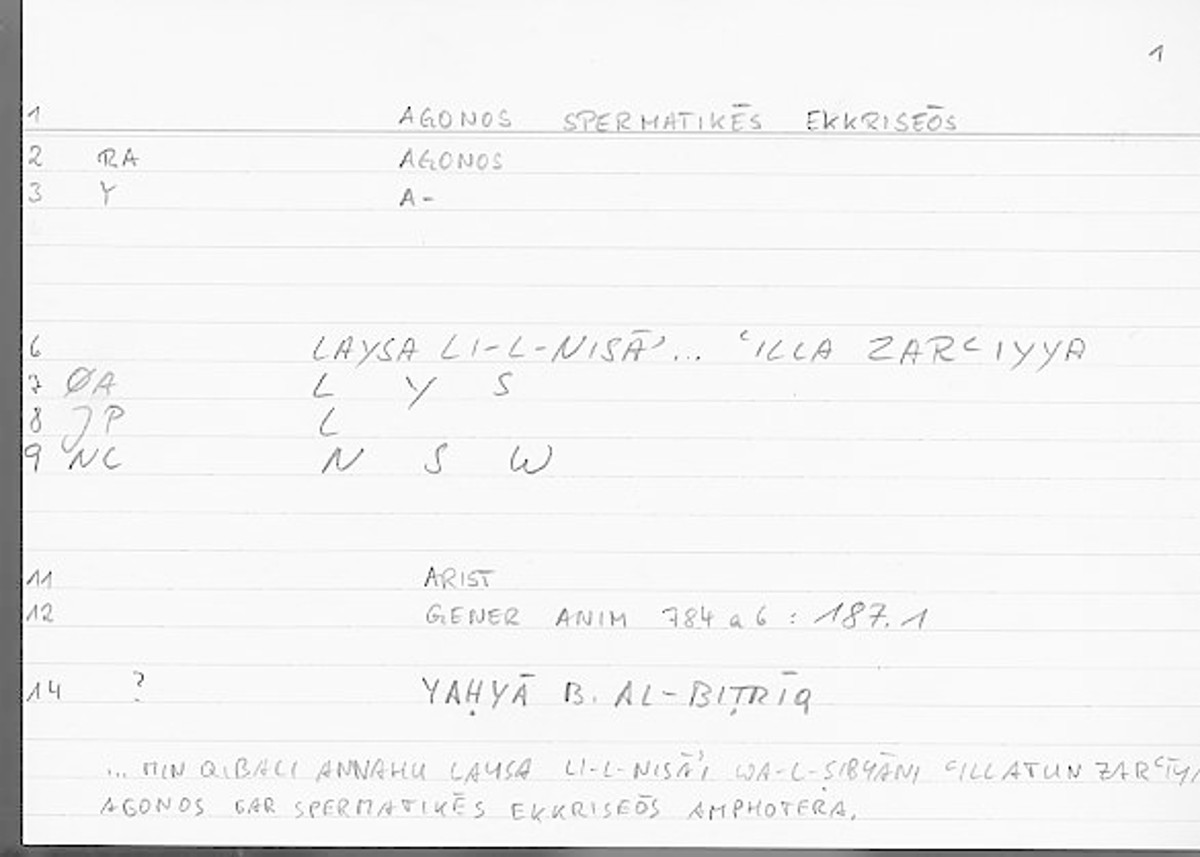 1
1 AGONOS SPERMATIKĒS EKKRISEŌS
2 RA AGONOS
3 Y A-
6 LAYSA LI-L-NISĀʾ... ʿILLA ZARʿIYYA
7 ØA L Y S
8 JP L
9 NC N S W
11 ARIST
12 GENER ANIM 784 a 6 : 187.1
14 ? YAḤYĀ B. AL-BIṬRĪQ
... MIN QIBALI ANNAHU LAYSA LI-L-NISĀʾI WA-L-ṢIBYĀNI ʿILLATUN
AGONOS GAR SPERMATIKĒS EKKRISEŌS AMPHOTERA.